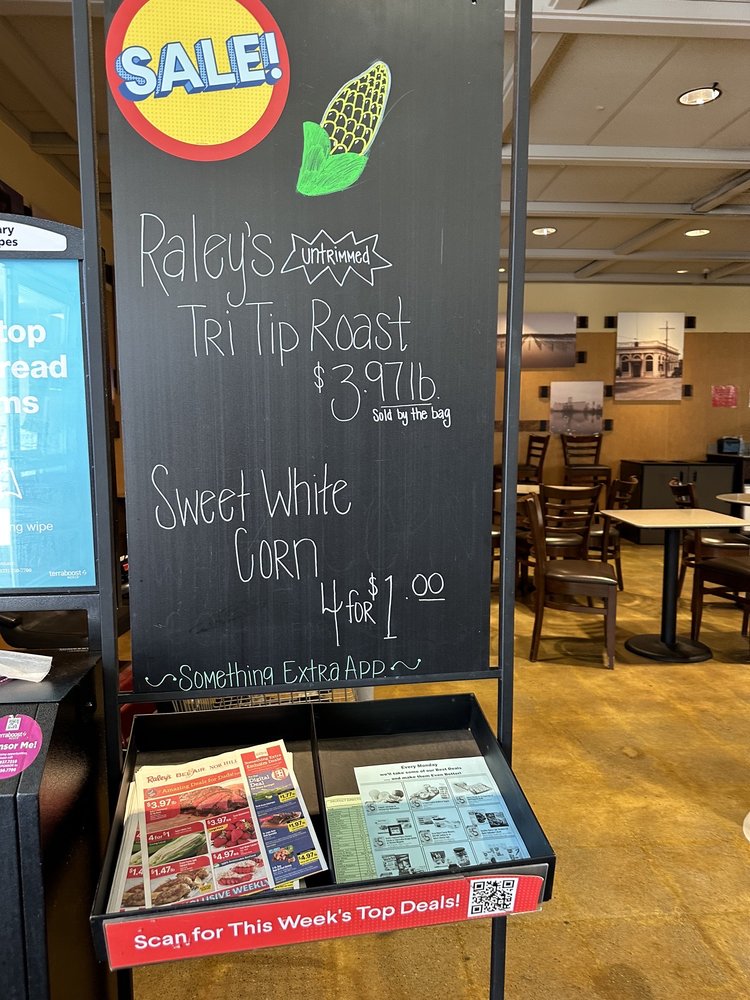 SALE!
Raley's untrimmed
Tri Tip Roast
$3.97lb.
Sold by the bag
Sweet White
Corn
4 for $1.00
~Something Extra App~
top
read
ms
ng wipe
terraboost
Raley's Bel Air Nob Hill
Amazing Deals for
$3.97lb
4 for $1
$3.97
$1.47lb
$4.97
Digital
Deal
1.97
4.97
Every Monday
we'll take some of our Best Deals
and make them Even Better!
nsor Me!
Scan for This Week's Top Deals!